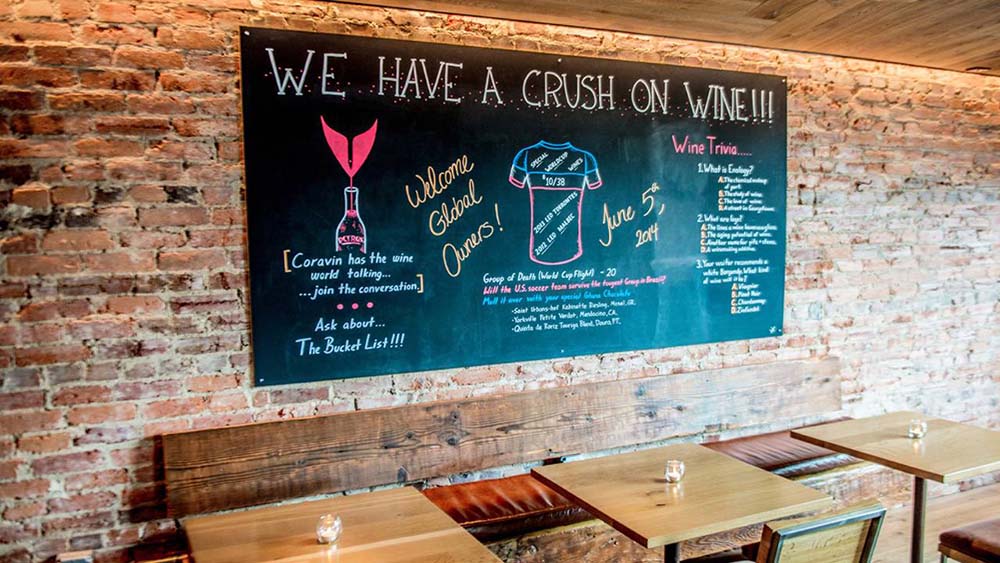 WE HAVE A CRUSH ON WINE!!!
PETRUS
[Coravin has the wine
world talking...
...join the conversation.]
Ask about...
The Bucket List!!!
Welcome
Global
Owners!
SPECIAL WORLDCUP WINES
$10/38
2013 LEO TORRONTES
2012 LEO MALBEC
June 5th,
2014
Group of Death (World Cup Flight) - 20
Will the U.S. soccer team survive the tougest Group in Brazil?
Mull it over with your special Ghana Chocolate
-Saint Urbans-hof Kabinette Riesling, Mosel, GR.
-Yorkville Petite Verdot, Mendocino, CA.
-Quinta de Roriz Touriga Blend, Douro, PT.
Wine Trivia.....
1. What is Enology?
A. The chemical makeup
of port.
B. The study of wine.
C. The love of wine.
D. A street in Georgetown.
2. What are legs?
A. The lines a wine leaves on glass.
B. The aging potential of wine.
C. Another name for a glass stem.
D. A winemaking additive.
3. Your waiter recommends a
white Burgundy. What kind
of wine will it be?
A. Viognier
B. Pinot Noir
C. Chardonnay
D. Zinfandel